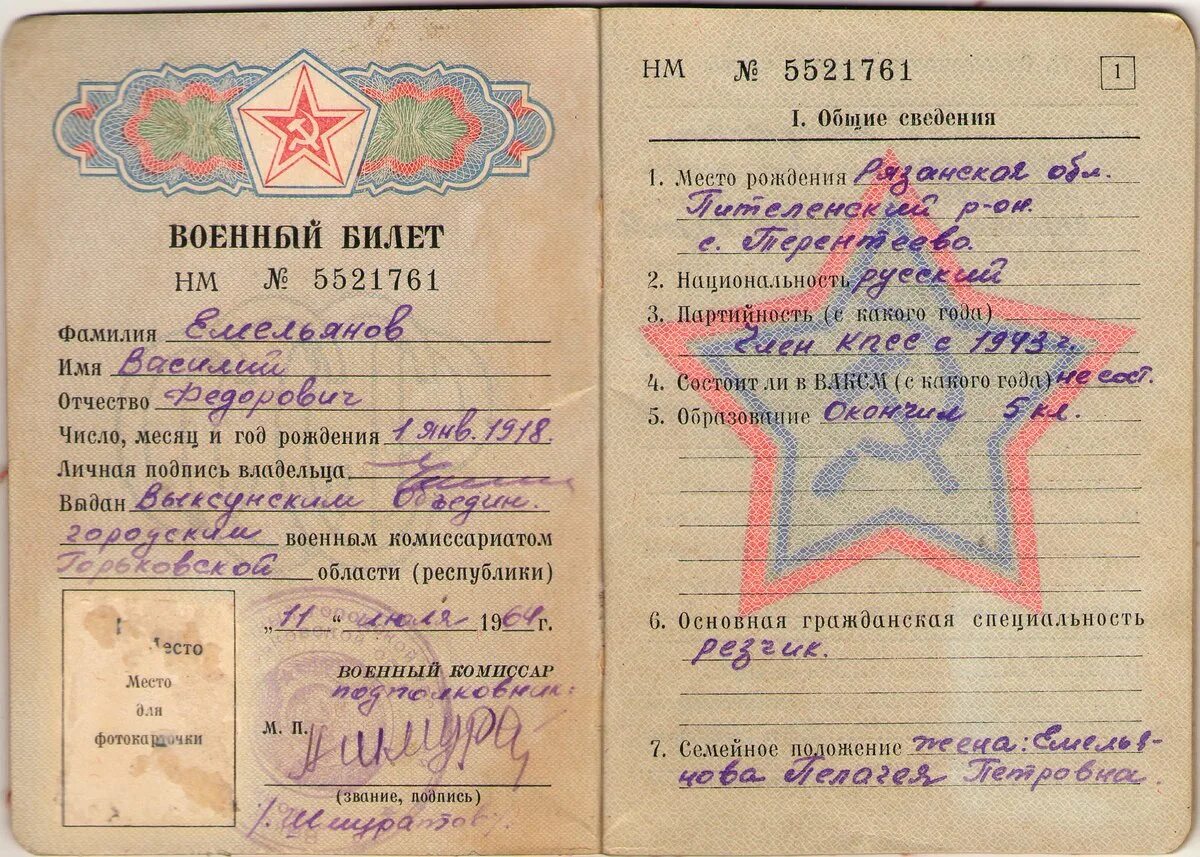 ВОЕННЫЙ БИЛЕТ
НМ № 5521761
Фамилия Емельянов
Имя Василий
Отчество Федорович
Число, месяц и год рождения 1 янв. 1918.
Личная подпись владельца
Выдан Выксунским Объедин.
городским военным комиссариатом
Горьковской области (республики)
„11“ июля 1964 г.
ВОЕННЫЙ КОМИССАР
подполковник:
М. П.
(звание, подпись)
Место
Место
для
фотокарточки
НМ № 5521761
1
I. Общие сведения
1. Место рождения Рязанская обл.
Пителенский р-он.
с. Терентеево.
2. Национальность русский
3. Партийность (с какого года)
Член КПСС с 1943 г.
4. Состоит ли в ВЛКСМ (с какого года) не сост.
5. Образование Окончил 5 кл.
6. Основная гражданская специальность
резчик.
7. Семейное положение жена: Емелья-
нова Пелагея Петровна.